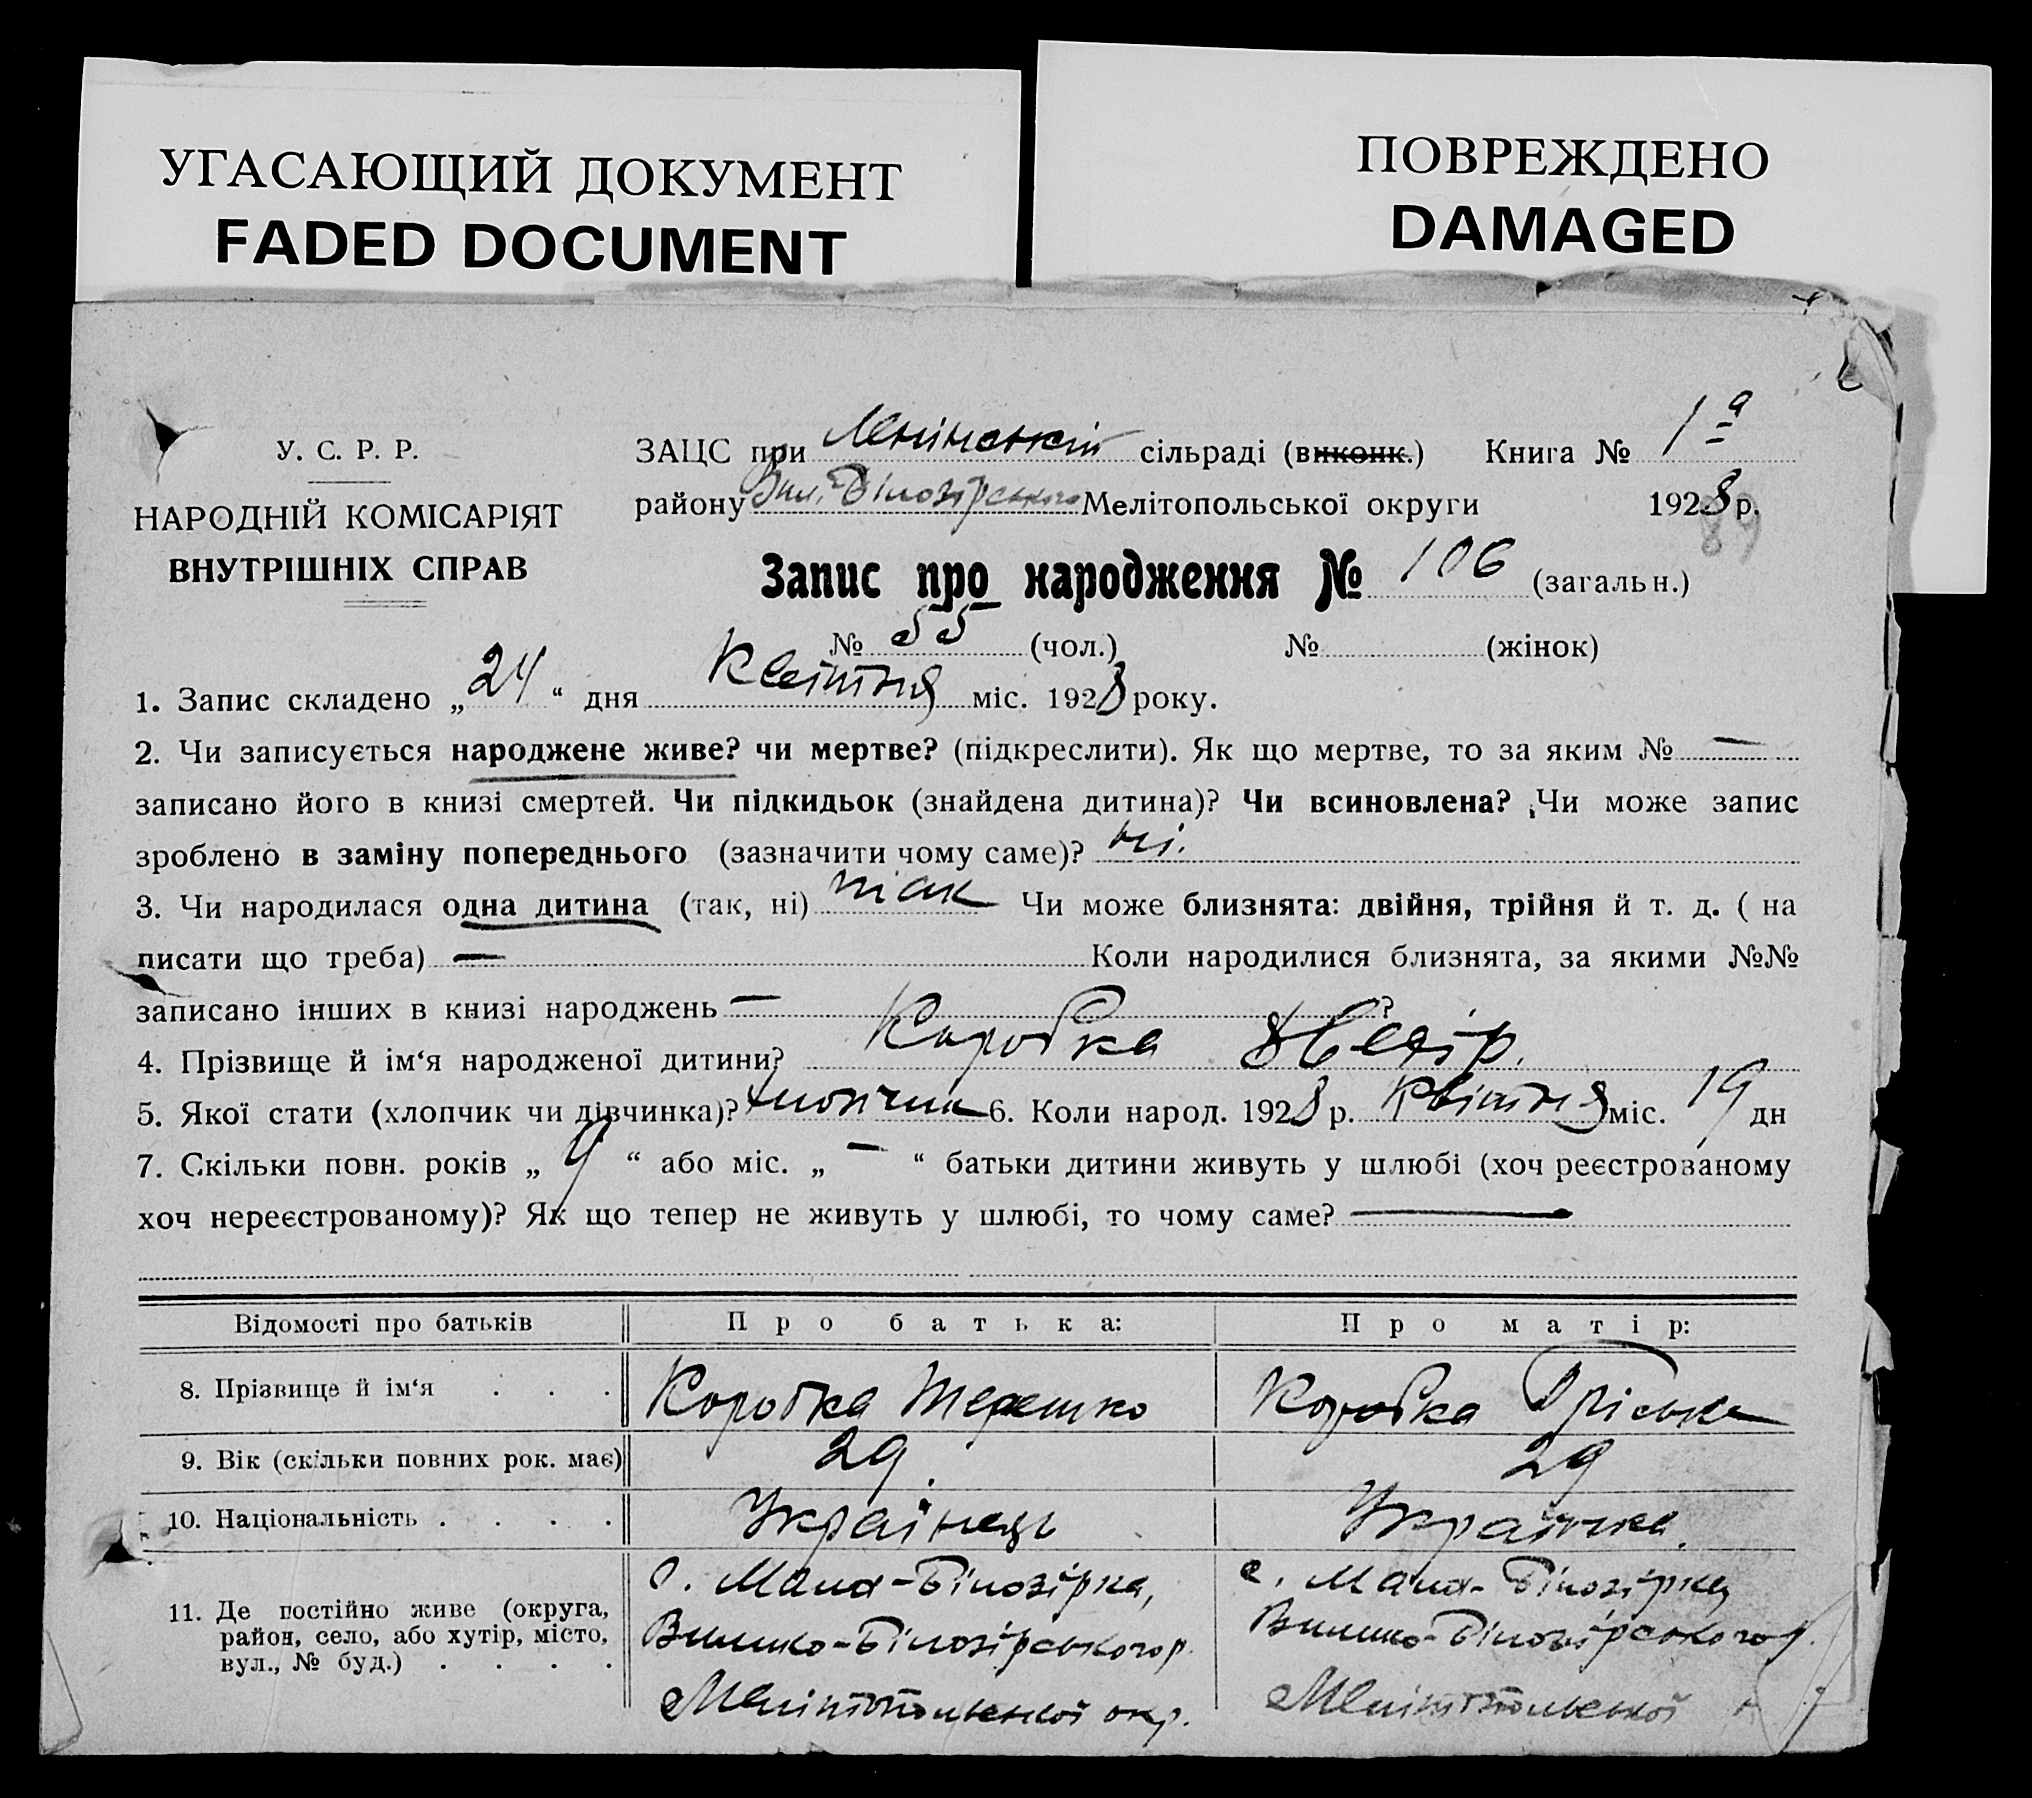 УГАСАЮЩИЙ ДОКУМЕНТ
FADED DOCUMENT
ПОВРЕЖДЕНО
DAMAGED
У. С. Р. Р.
НАРОДНІЙ КОМІСАРІЯТ
ВНУТРІШНІХ СПРАВ
ЗАЦС при Ленінській сільраді (виконк.) Книга № 1а
району Вил. Білозірського Мелітопольської округи 1928 р.
89
Запис про народження № 106 (загальн.)
№ 55 (чол.) № (жінок)
1. Запис складено „ 24 “ дня Квітня міс. 1928 року.
2. Чи записується народжене живе? чи мертве? (підкреслити). Як що мертве, то за яким № —
записано його в книзі смертей. Чи підкидьок (знайдена дитина)? Чи всиновлена? Чи може запис
зроблено в заміну попереднього (зазначити чому саме)? ні.
3. Чи народилася одна дитина (так, ні) так Чи може близнята: двійня, трійня й т. д. ( на
писати що треба) — Коли народилися близнята, за якими №№
записано інших в книзі народжень — ?
4. Прізвище й ім‘я народженої дитини? Коробка
5. Якої стати (хлопчик чи дівчинка)? хлопчик 6. Коли народ. 1928 р. Квітня міс. 19 дн
7. Скільки повн. років „ 9 “ або міс. „ — “ батьки дитини живуть у шлюбі (хоч реєстрованому
хоч нереєстрованому)? Як що тепер не живуть у шлюбі, то чому саме? —
Відомості про батьків Про батька: Про матір:
8. Прізвище й ім‘я . . . Коробка Терешко Коробка Пріська
9. Вік (скільки повних рок. має) 29. 29
10. Національність . . . . Українець Українка.
11. Де постійно живе (округа,
район, село, або хутір, місто,
вул., № буд.) . . . .
с. Мала-Білозірка,
Вилико-Білозірського р.
Мелітопольської окр.
с. Мала-Білозірка
Вилико-Білозірського р.
Мелітопольської